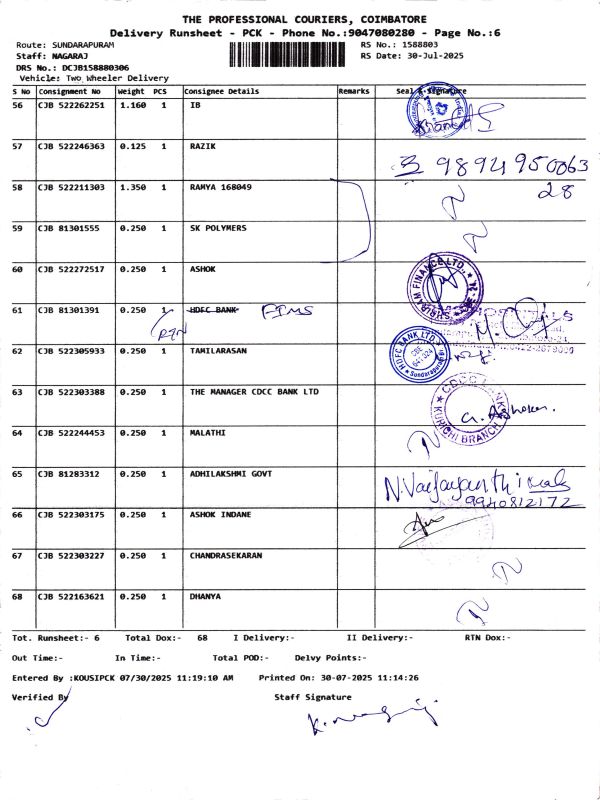 THE PROFESSIONAL COURIERS, COIMBATORE
Delivery Runsheet - PCK - Phone No.:9047080280 - Page No.:6
Route: SUNDARAPURAM
RS No.: 1588803
Staff: NAGARAJ
RS Date: 30-Jul-2025
DRS No.: DCJB158880306
Vehicle: Two Wheeler Delivery
S No Consignment No Weight PCS Consignee Details Remarks Seal & Signature
56 CJB 522262251 1.160 1 IB
57 CJB 522246363 0.125 1 RAZIK
9894950063
58 CJB 522211303 1.350 1 RAMYA 168049
28
59 CJB 81301555 0.250 1 SK POLYMERS
60 CJB 522272517 0.250 1 ASHOK
SHRIRAM FINANCE LTD.
61 CJB 81301391 0.250 1 HDFC BANK
HDFC BANK LTD.
Sundarapuram
62 CJB 522305933 0.250 1 TAMILARASAN
63 CJB 522303388 0.250 1 THE MANAGER CDCC BANK LTD
CDCC BANK
KURICHI BRANCH
G. Ashokan.
64 CJB 522244453 0.250 1 MALATHI
65 CJB 81283312 0.250 1 ADHILAKSHMI GOVT
N.Vaijayanthimala
9940812172
66 CJB 522303175 0.250 1 ASHOK INDANE
67 CJB 522303227 0.250 1 CHANDRASEKARAN
68 CJB 522163621 0.250 1 DHANYA
Tot. Runsheet:- 6 Total Dox:- 68 I Delivery:- II Delivery:- RTN Dox:-
Out Time:- In Time:- Total POD:- Delvy Points:-
Entered By :KOUSIPCK 07/30/2025 11:19:10 AM Printed On: 30-07-2025 11:14:26
Verified By
Staff Signature